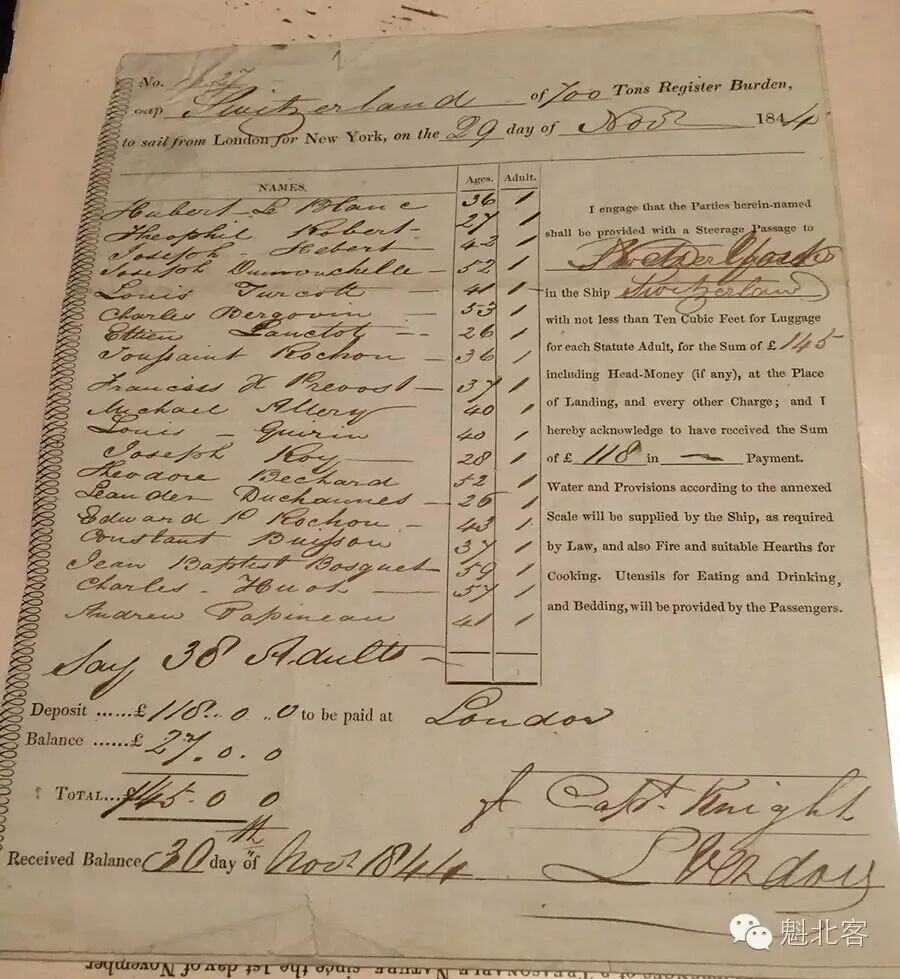 No. 1627
Ship Switzerland of 700 Tons Register Burden,
to sail from London for New York, on the 29 day of Novr 1844
NAMES. Ages. Adult.
Hubert Le Blanc 36 1
Theophil Robert 27 1
Joseph Hebert 42 1
Joseph Dumouchelle 52 1
Louis Turcott 41 1
Charles Bergovin 53 1
Ettien Lanctot 26 1
Toussaint Rochon 36 1
Franciss X Prevost 37 1
Michael Allery 40 1
Louis Guirin 40 1
Joseph Roy 28 1
Theodore Bechard 52 1
Leander Duchaumes 26 1
Edward P Rochon 43 1
Constant Buisson 37 1
Jean Baptist Bosquet 59 1
Charles Huot 57 1
Andrew Papineau 41 1
Say 38 Adults
I engage that the Parties herein-named
shall be provided with a Steerage Passage to
in the Ship Switzerland
with not less than Ten Cubic Feet for Luggage
for each Statute Adult, for the Sum of £ 145
including Head-Money (if any), at the Place
of Landing, and every other Charge; and I
hereby acknowledge to have received the Sum
of £ 118 in — Payment.
Water and Provisions according to the annexed
Scale will be supplied by the Ship, as required
by Law, and also Fire and suitable Hearths for
Cooking. Utensils for Eating and Drinking,
and Bedding, will be provided by the Passengers.
Deposit ......£ 118..0..0 to be paid at London
Balance ......£ 27.0.0
TOTAL...£ 145.0 0
Capt. Knight
Received Balance 30th day of Novr 1844
of a TREASONABLE NATURE, since the 1st day of November
魁北客